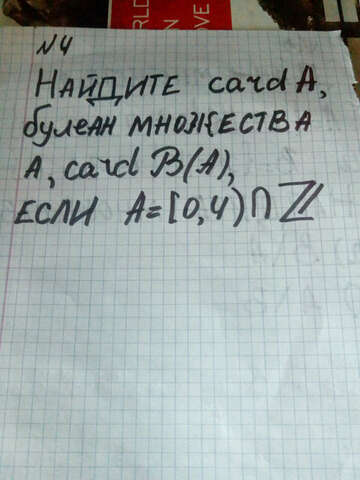 RLD
VE
№4
НАЙДИТЕ card A,
булеан МНОЖЕСТВА
A, card B(A),
ЕСЛИ A=[0,4)∩ℤ